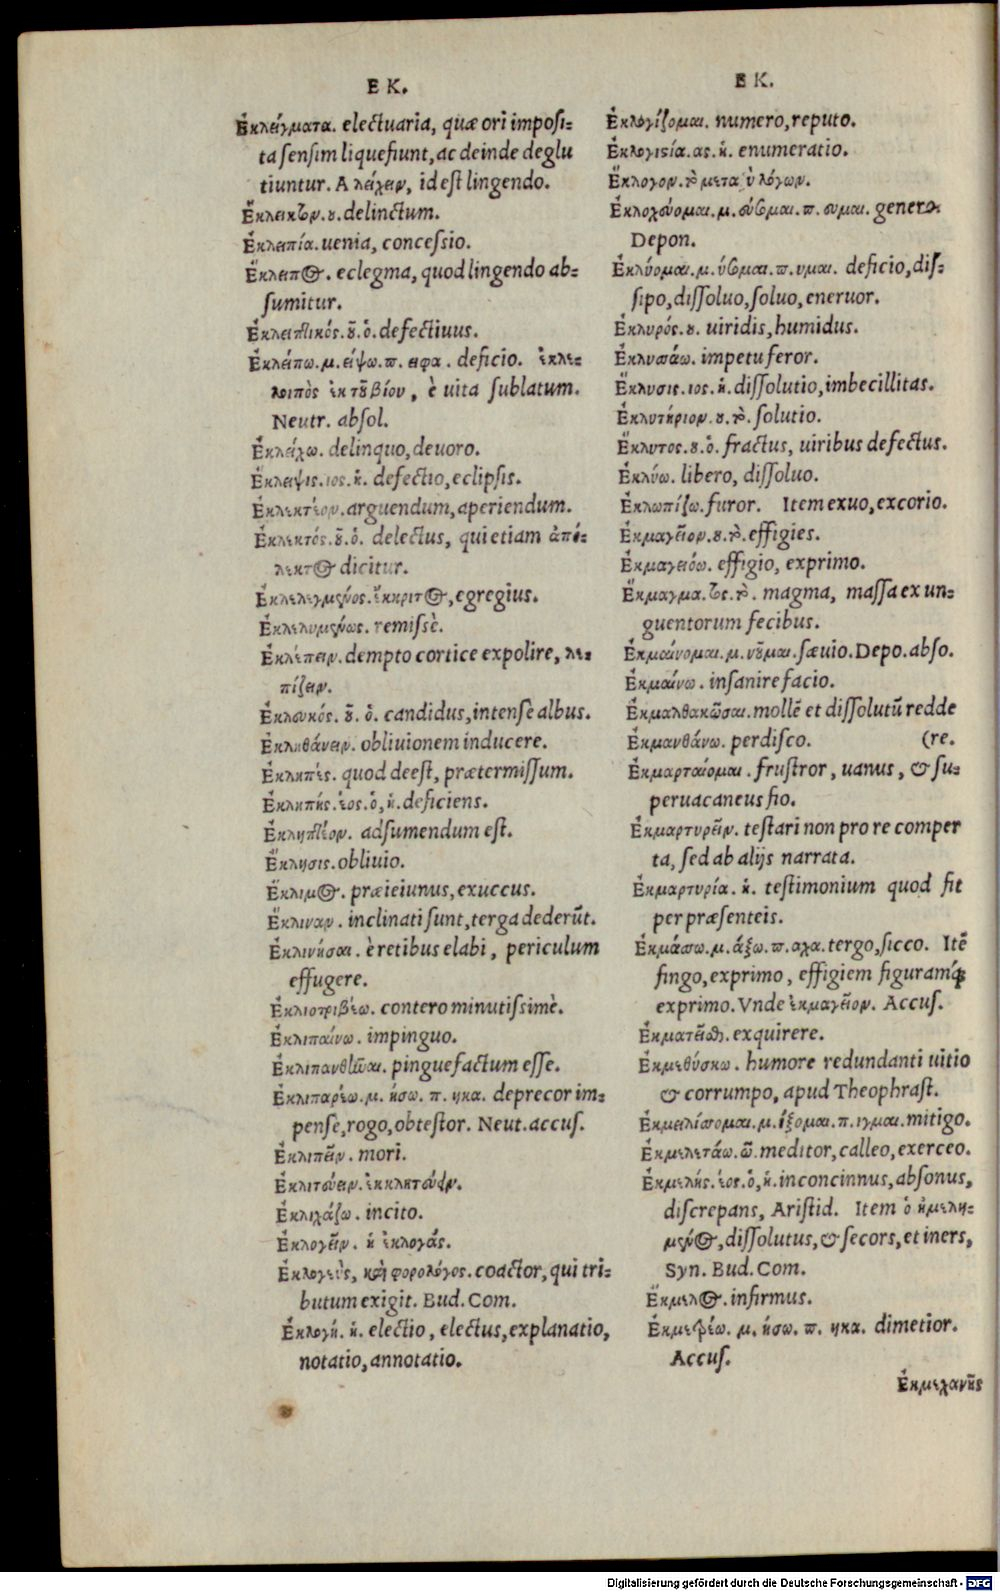 E K.
Ἐκλείγματα. electuaria, quæ ori imposi-
ta sensim liquefiunt, ac deinde deglu
tiuntur. A λείχειν, id est lingendo.
Ἔκλεικτον. ου. delinctum.
Ἐκλειπία. uenia, concessio.
Ἔκλειπος. eclegma, quod lingendo ab-
sumitur.
Ἐκλειπτικός. οῦ. ὁ. defectiuus.
Ἐκλείπω. μ. είψω. π. ειφα. deficio. ἐκλε-
λοιπὸς ἐκ τοῦ βίου, è uita sublatum.
Neutr. absol.
Ἐκλείχω. delinquo, deuoro.
Ἔκλειψις. ιος. ἡ. defectio, eclipsis.
Ἐκλεκτέον. arguendum, aperiendum.
Ἐκλεκτός. οῦ. ὁ. delectus, qui etiam ἀπό-
λεκτος dicitur.
Ἐκλελεγμένος. ἔκκριτος, egregius.
Ἐκλελυμένως. remissè.
Ἐκλέπειν. dempto cortice expolire, λε-
πίζειν.
Ἐκλευκός. οῦ. ὁ. candidus, intense albus.
Ἐκληθάνειν. obliuionem inducere.
Ἐκληπές. quod deest, prætermissum.
Ἐκληπής. έος. ὁ, ἡ. deficiens.
Ἐκληπτέον. adsumendum est.
Ἔκλησις. obliuio.
Ἔκλιμος. præieiunus, exuccus.
Ἔκλιναν. inclinati sunt, terga dederūt.
Ἐκλινῆσαι. è retibus elabi, periculum
effugere.
Ἐκλιοτριβέω. contero minutissimè.
Ἐκλιπαίνω. impinguo.
Ἐκλιπανθῶαι. pinguefactum esse.
Ἐκλιπαρέω. μ. ήσω. π. ηκα. deprecor im-
pense, rogo, obtestor. Neut. accus.
Ἐκλιπεῖν. mori.
Ἐκλιτεύειν. ἐκκλητεύειν.
Ἐκλιχάζω. incito.
Ἐκλογεῖν. ἡ ἐκλογάς.
Ἐκλογεὺς, καὶ φορολόγος. coactor, qui tri-
butum exigit. Bud. Com.
Ἐκλογή. ἡ. electio, electus, explanatio,
notatio, annotatio.
E K.
Ἐκλογίζομαι. numero, reputo.
Ἐκλογισία. ας. ἡ. enumeratio.
Ἔκλογον. τὸ μετα ὐ λόγων.
Ἐκλοχεύομαι. μ. εύσομαι. π. ευμαι. genero.
Depon.
Ἐκλύομαι. μ. ύσομαι. π. υμαι. deficio, dis-
sipo, dissoluo, soluo, eneruor.
Ἐκλυρός. ου. uiridis, humidus.
Ἐκλυσάω. impetu feror.
Ἔκλυσις. ιος. ἡ. dissolutio, imbecillitas.
Ἐκλυτήριον. ου. τὸ. solutio.
Ἔκλυτος. ου. ὁ. fractus, uiribus defectus.
Ἐκλύω. libero, dissoluo.
Ἐκλωπίζω. furor. Item exuo, excorio.
Ἐκμαγεῖον. ου. τὸ. effigies.
Ἐκμαγειόω. effigio, exprimo.
Ἔκμαγμα. τος. τὸ. magma, massa ex un-
guentorum fecibus.
Ἐκμαίνομαι. μ. νοῦμαι. sæuio. Depo. abso.
Ἐκμαίνω. insanire facio.
Ἐκμαλθακῶσαι. mollē et dissolutū redde
Ἐκμανθάνω. perdisco. (re.
Ἐκμαρταίομαι. frustror, uanus, & su-
peruacaneus fio.
Ἐκμαρτυρεῖν. testari non pro re comper
ta, sed ab alijs narrata.
Ἐκμαρτυρία. ἡ. testimonium quod fit
per præsenteis.
Ἐκμάσσω. μ. άξω. π. αχα. tergo, sicco. Itē
fingo, exprimo, effigiem figuramq́;
exprimo. Vnde ἐκμαγεῖον. Accus.
Ἐκματεῖσθαι. exquirere.
Ἐκμεθύσκω. humore redundanti uitio
& corrumpo, apud Theophrast.
Ἐκμειλίσσομαι. μ. ίξομαι. π. ιγμαι. mitigo.
Ἐκμελετάω. ῶ. meditor, calleo, exerceo.
Ἐκμελής. έος. ὁ, ἡ. inconcinnus, absonus,
discrepans, Aristid. Item ὁ ἠμελη-
μένος, dissolutus, & secors, et iners,
Syn. Bud. Com.
Ἔκμελος. infirmus.
Ἐκμετρέω. μ. ήσω. π. ηκα. dimetior.
Accus.
Ἐκμεχανῆς
Digitalisierung gefördert durch die Deutsche Forschungsgemeinschaft - DFG